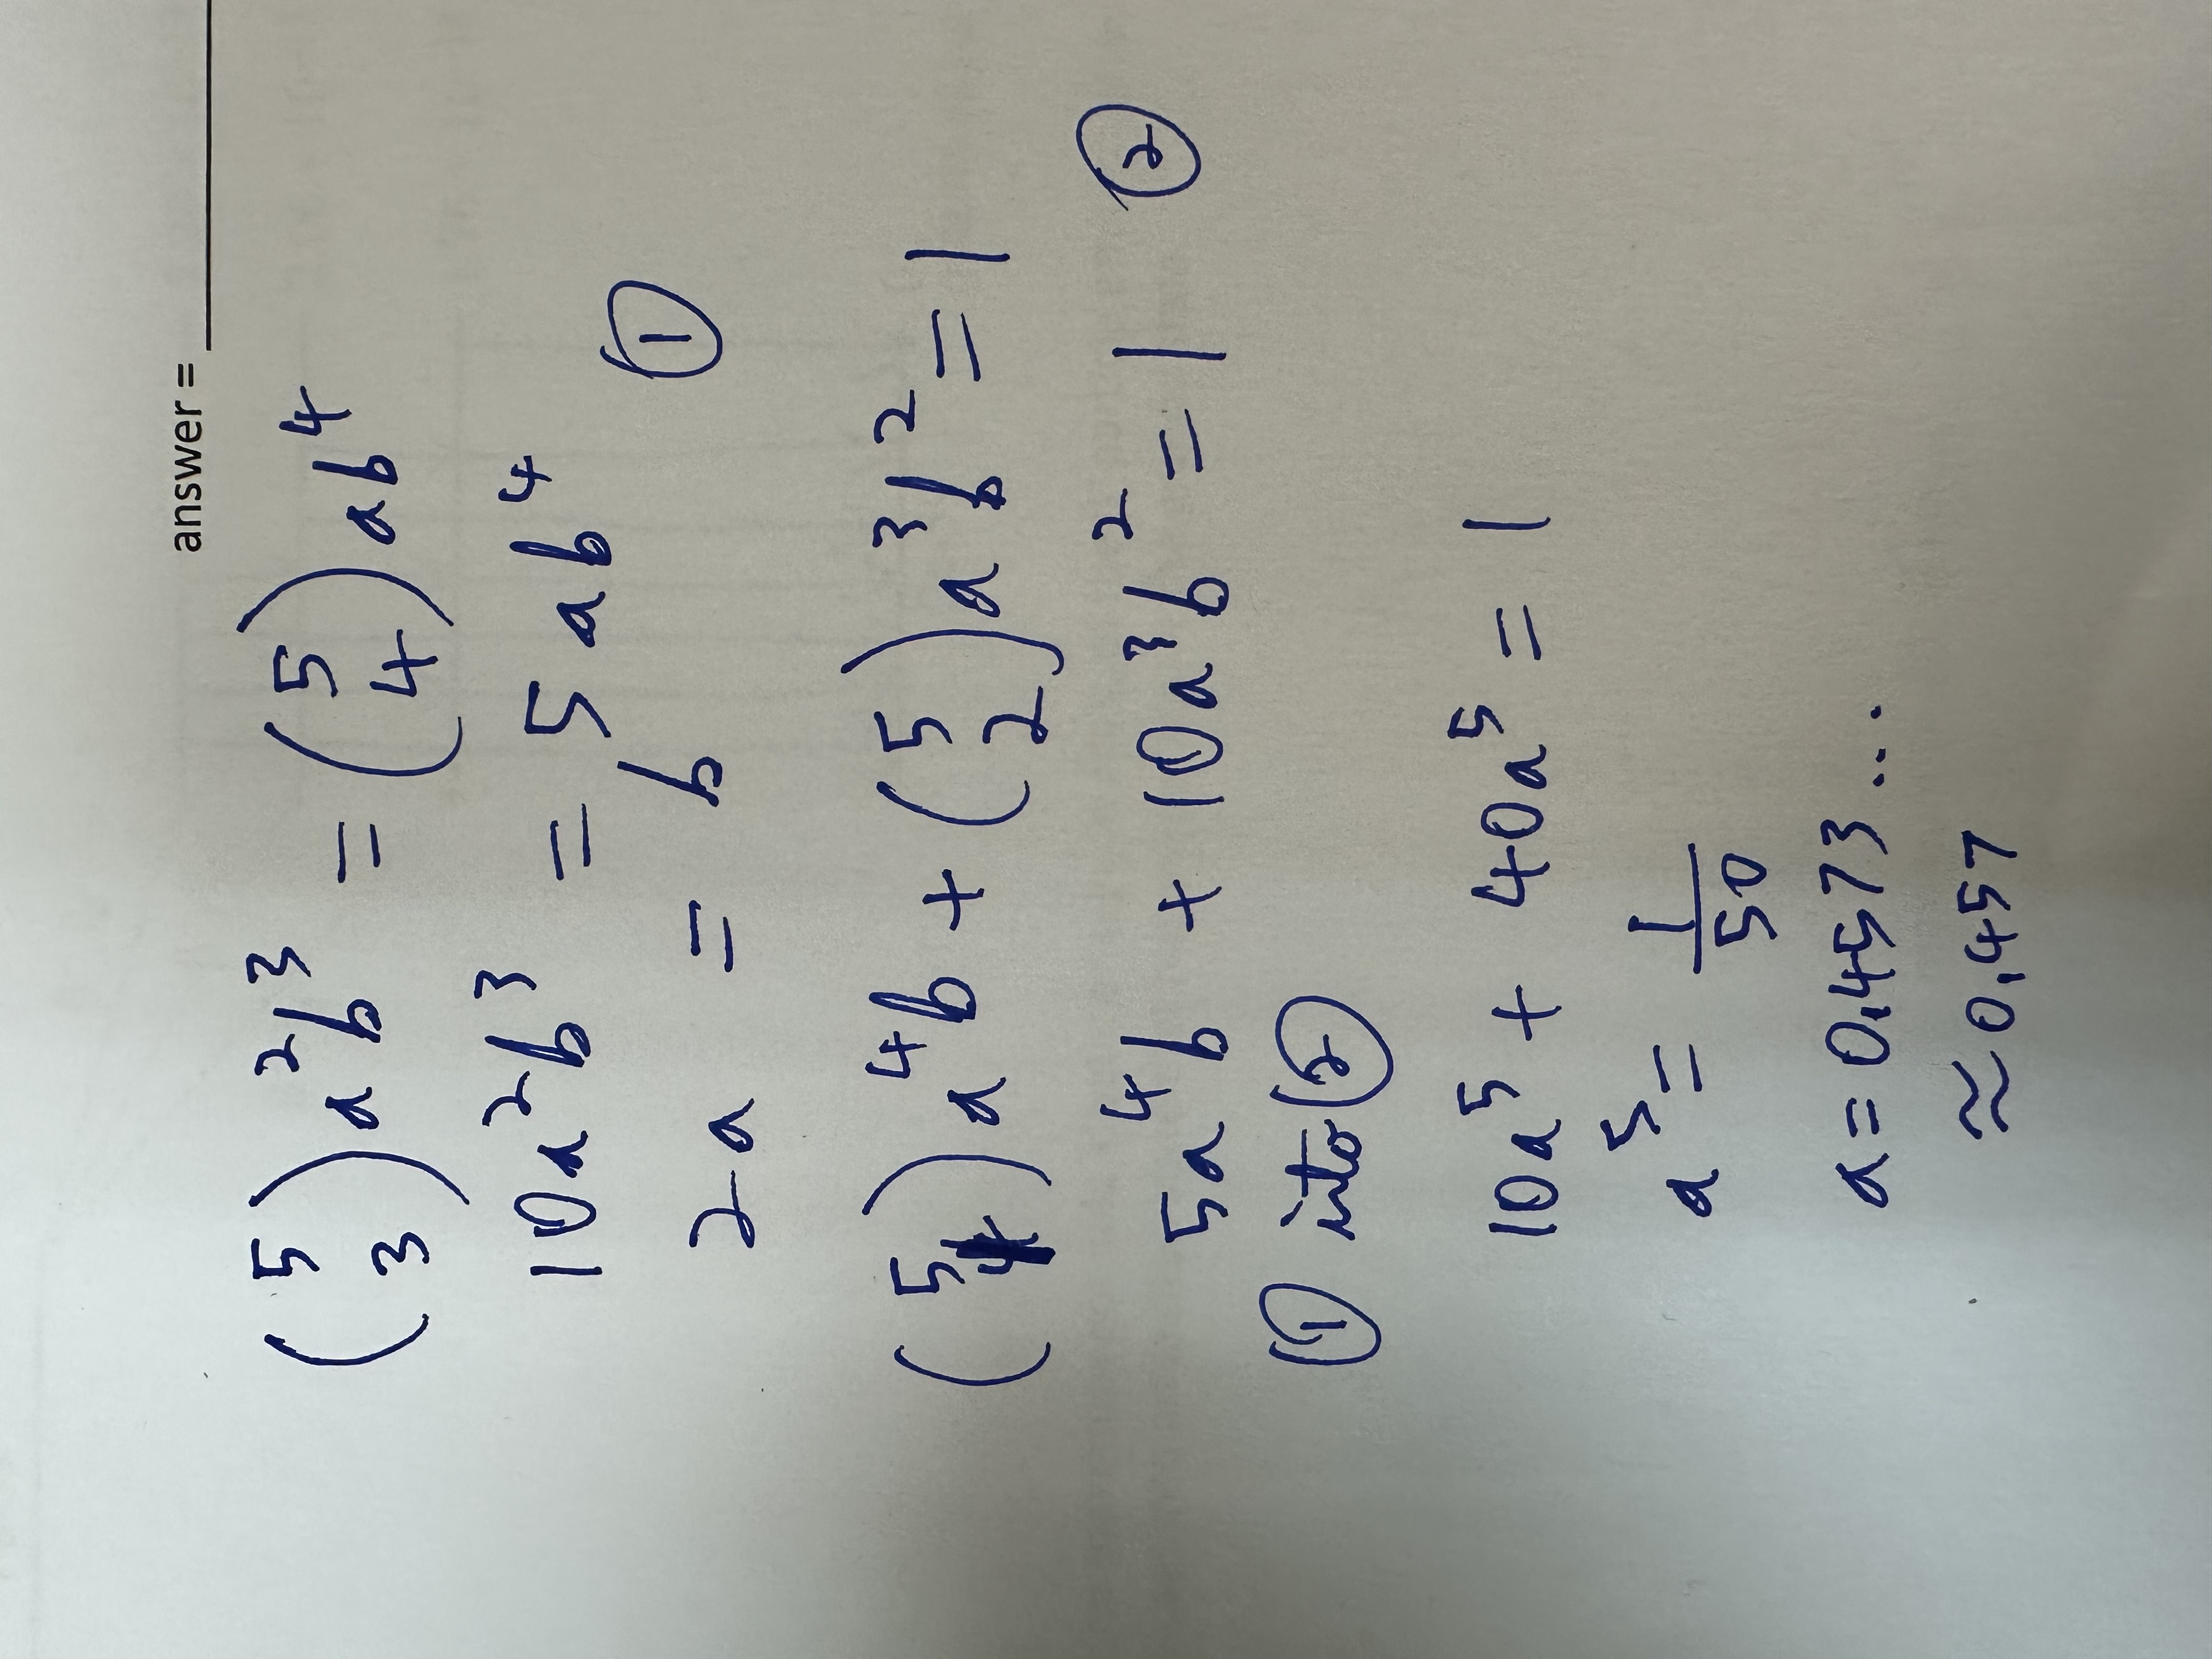 answer = ________
(5 3) a²b³ = (5 4) ab⁴
10a²b³ = 5ab⁴
2a = b ①
(5 1) a⁴b + (5 2) a³b² = 1
5a⁴b + 10a³b² = 1 ②
① into ②
10a⁵ + 40a⁵ = 1
a⁵ = 1/50
a = 0.4573...
≈ 0.457